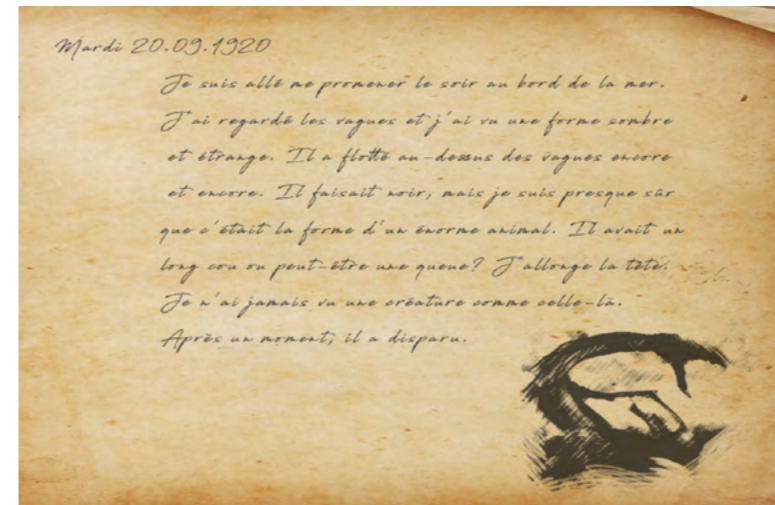 Mardi 20.09.1920
Je suis allé me promener le soir au bord de la mer.
J'ai regardé les vagues et j'ai vu une forme sombre
et étrange. Il a flotté au-dessus des vagues encore
et encore. Il faisait noir, mais je suis presque sûr
que c'était la forme d'un énorme animal. Il avait un
long cou ou peut-être une queue? J'allonge la tête.
Je n'ai jamais vu une créature comme celle-là.
Après un moment, il a disparu.